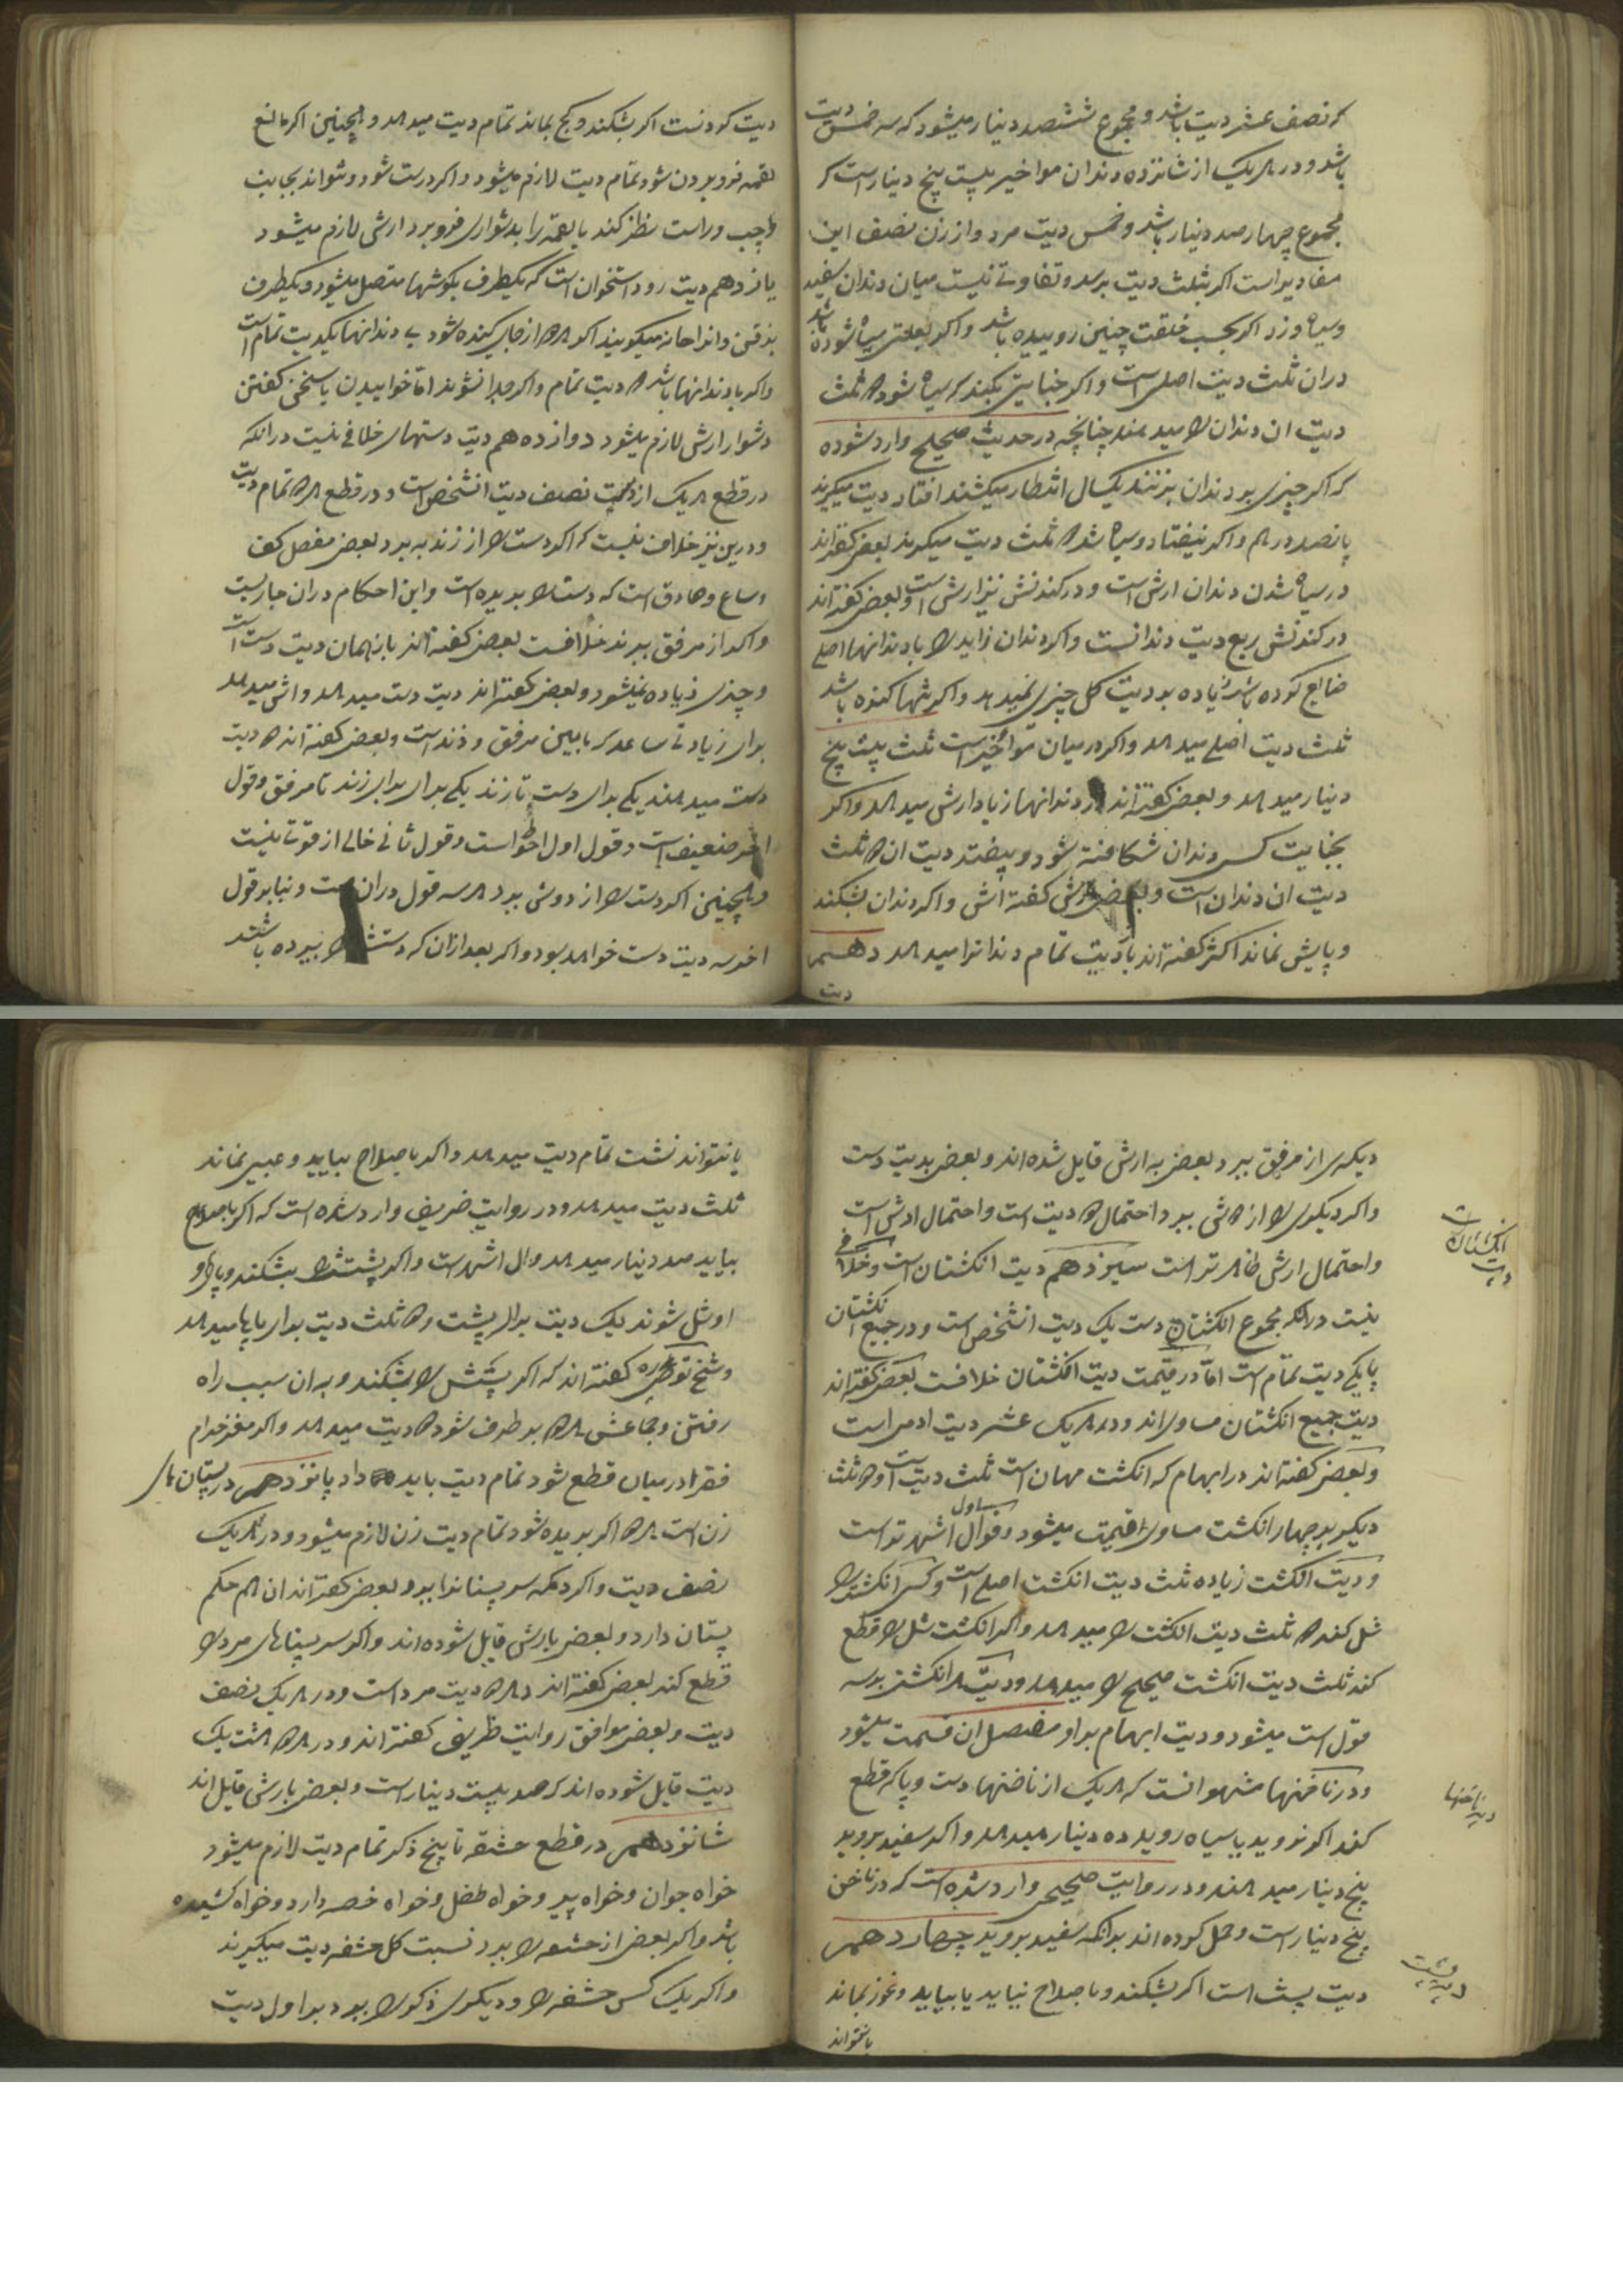 که نصف عشر دیت باشد و مجموع ششصد دینار میشود که سه خمس دیت
باشد و در هر یک از شانزده دندان مواخیر بیست پنج دینار است که
مجموع چهار صد دینار باشد و خمس دیت مرد و از زن نصف این
مقادیر است اکر بثلث دیت برسد و تفاوتی نیست میان دندان سفید
وسیاه وزرد اکر بحسب خلقت چنین روییده باشد و اکر بعلتی سیاه شوده باشد
دران ثلث دیت اصلی است و اکر جنایتی بکند که سیاه شود دو ثلث
دیت ان دندان را میدهند چنانچه در حدیث صحیح وارد شوده
که اکر چیزی بر دندان بزنند یکسال انتظار میکشند افتاد دیت میکیرند
پانصد درهم و اکر نیفتاد و سیاه شد دو ثلث دیت میکیرند بعضی کفته اند
در سیاه شدن دندان ارش است و در کندنش نیز ارش است و بعضی کفته اند
در کندنش ربع دیت دندانست و اکر دندان زاید را با دندانها اصلی
ضایع کوده باشد زیاده بر دیت کل چیزی نمیدهد و اکر تنها کنده باشد
ثلث دیت اصلی میدهد و اکر در میان مواخیر است ثلث بیست پنج
دینار میدهد و بعضی کفته اند در دندانها زیاد ارش میدهد و اکر
بجنایت کسی دندان شکافته شود و بیفتد دیت ان دو ثلث
دیت ان دندان است و بعضی ارش کفته اش و اکر دندان بشکند
و پایش نماند اکثر کفته اند باز دیت تمام دندانرا میدهد دهم
دیت
دیت کودنست اکر بشکند و کج بماند تمام دیت میدهد و همچنین اکر مانع
لقمه فرو بردن شود تمام دیت لازم میشود و اکر درست شود و نتواند بجانب
چپ وراست نظر کند یا لقمه را بدشواری فرو برد ارش لازم میشود
یازدهم دیت رو استخوان است که یکطرف بکوشها متصل میشود و یکطرف
بذقن وانرا حانه میکویند اکر هر دو از جای کنده شود بی دندانها یکدیت تمام است
واکر با دندانها باشد دو دیت تمام واکر جدا نشوند اما خوابیدن یا سخن کفتن
دشوار ارش لازم میشود دوازدهم دیت دستهاست خلافی نیست در انکه
در قطع هر یک از دست نصف دیت انشخص است و در قطع هر دو تمام دیت
و درین نیز خلاف نیست که اکر دست را از زند ببرد بعضی مفصل کف
وساع وصادق است که دست را بریده است و این احکام دران جاریست
واکر از مرفق ببرند خلافست بعضی کفته اند باز همان دیت دست است
و چیزی زیاده نمیشود و بعضی کفته اند دیت دست میدهد و ارش میدهد
برای زیادتی ساعد که مابین مرفق و زند است و بعضی کفته اند دو دیت
دست میدهند یکی برای دست تا زند یکی برای برای زند تا مرفق و قول
اخر ضعیف است و قول اول احوط است و قول ثانی خالی از قوتی نیست
و همچنین اکر دست را از دوش ببرد هر سه قول دران هست و بنا بر قول
اخر سه دیت دست خواهد بود و اکر بعد ازان که دستش را بریده باشند
دیکری از مرفق ببرد بعضی به ارش قایل شده اند و بعضی بدیت دست
واکر دیکری را از دوش ببرد احتمال دو دیت است و احتمال ارش است
و احتمال ارش ظاهر تر است سیزدهم دیت انکشتان است و خلافی
نیست در انکه مجموع انکشتان دست یک دیت انشخص است و در جمیع انکشتان
پا یکی دیت تمام است اما در قیمت دیت انکشتان خلافست بعضی کفته اند
دیت جمیع انکشتان مساوی اند و در هر یک عشر دیت ادمی است
و بعضی کفته اند در ابهام که انکشت مهان است ثلث دیت است و دو ثلث
دیکر بر چهار انکشت مساوی قیمت میشود و قول اول اشهر تر است
و دیت انکشت زیاده ثلث دیت انکشت اصلی است و کسی انکشت را
شل کند دو ثلث دیت انکشت را میدهد و اکر انکشت شل را قطع
کند ثلث دیت انکشت صحیح را میدهد و دیت هر انکشتی بر سه
قول است میشود و دیت ابهام بر او مفصل ان قسمت میشود
و در ناخنها مشهور انست که هر یک از ناخنها دست و پا که قطع
کند اکر نروید یا سیاه روید ده دینار میدهد و اکر سفید بروید
پنج دینار میدهند و در روایت صحیحی وارد شده است که در ناخن
پنج دینار است و حمل کوده اند بر انکه سفید بروید چهاردهم
دیت پشت است اکر بشکند و باصلاح نیاید یا بیاید و غوز بماند
یا نتواند
دیت انکشتان
دیت ناخنها
دیت پشت
یا نتواند نشست تمام دیت میدهد و اکر باصلاح بیاید و عیبی نماند
ثلث دیت میدهد و در روایت ضریفی وارد شده است که اکر باصلاح
بیاید صد دینار میدهد واول اشهر است واکر پشتش را بشکند و پای او
او شل شوند یک دیت برای پشت و دو ثلث دیت برای پاها میدهد
و شیخ کفته اند که اکر پشتش را بشکند و به ان سبب راه
رفتن و جماعش هر دو بر طرف شود دو دیت میدهد و اکر مغز حرام
فقرا در میان قطع شود تمام دیت باید داد پانزدهم در پستان های
زن است هر دو اکر بریده شود تمام دیت زن لازم میشود و در هر یک
نصف دیت و اکر دکمه سر پستانرا ببرد بعضی کفته اند ان هم حکم
پستان دارد و بعضی بارش قایل شوده اند و اکر سر پستاهای مرد را
قطع کند بعضی کفته اند در هر دو دیت مرد است و در هر یک نصف
دیت و بعضی موافق روایت ظریف کفته اند و در هر دو هشت یک
دیت قایل شوده اند که صد بیست دینار است و بعضی بارش قایل اند
شانزدهم در قطع حشفه تا بیخ ذکر تمام دیت لازم میشود
خواه جوان و خواه پیر و خواه طفل و خواه خصیه دارد و خواه کشیده
باشد و اکر بعضی از حشفه را ببرد نسبت کل حشفه دیت میکیرند
و اکر یک کس حشفه را و دیکری ذکر را ببرد بر اول دیت